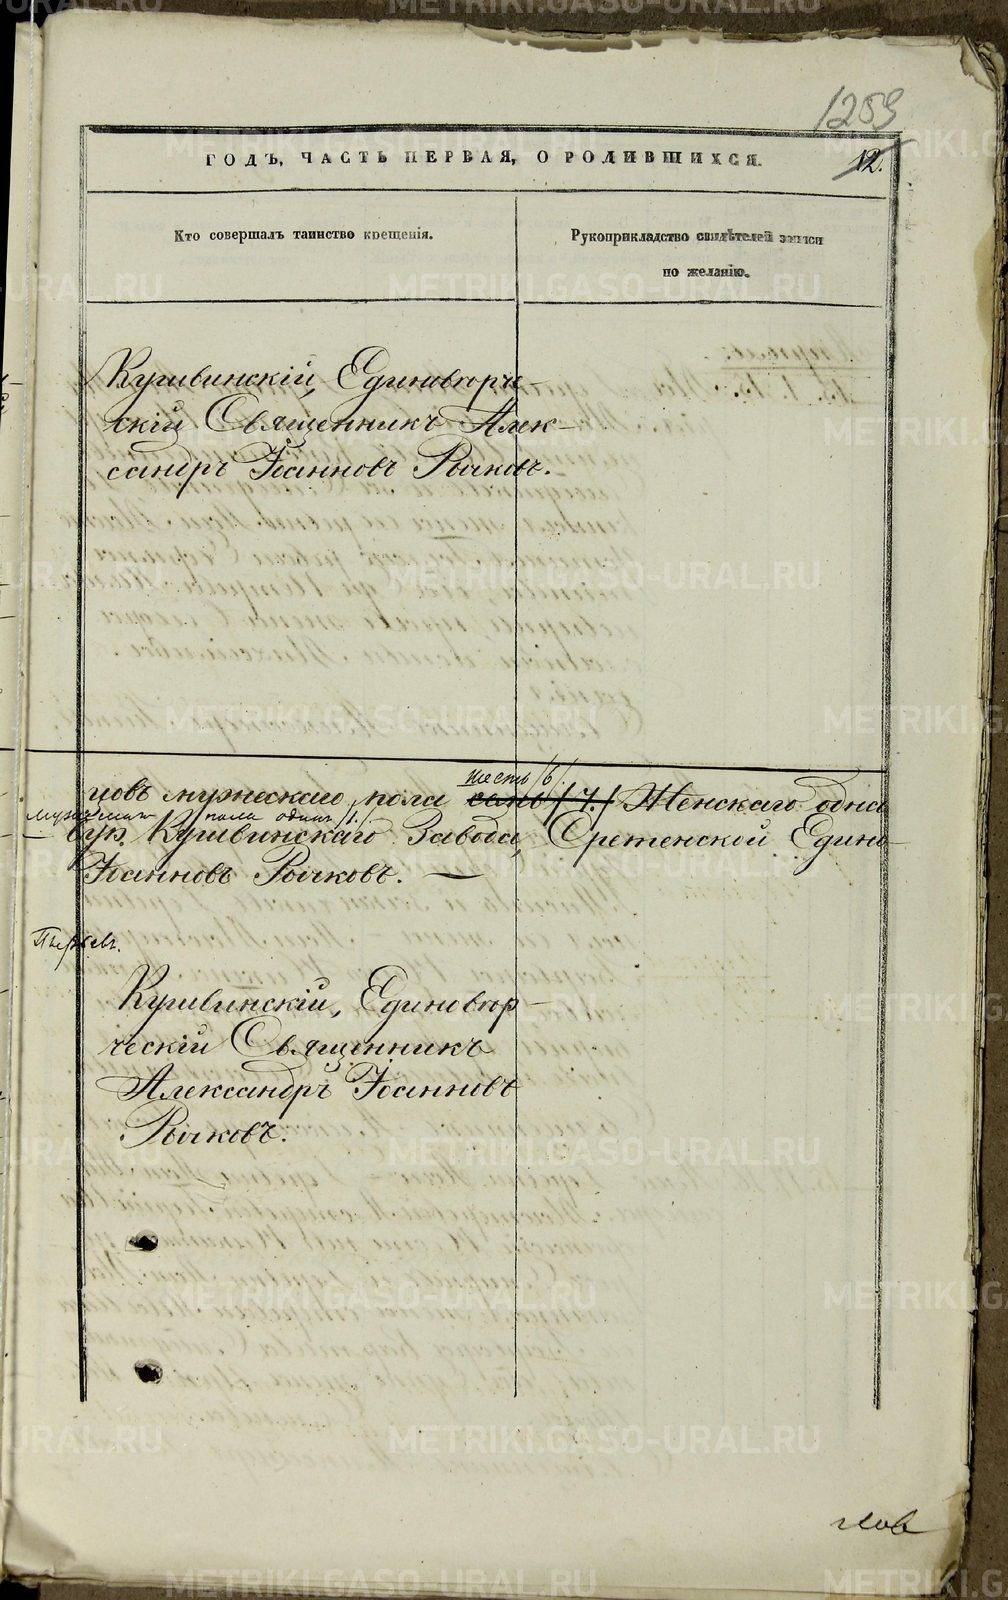 1259
ГОДЪ, ЧАСТЬ ПЕРВАЯ, О РОДИВШИХСЯ.
12.
Кто совершалъ таинство крещенія.
Рукоприкладство свидѣтелей записи
по желанію.
Кушвинскій, Единовѣрче-
скій Священникъ Алек-
сандръ Іоанновъ Рычковъ.
шесть /6/.
цовъ мужескаго пола семь /7./ Женскаго одна
пола одинъ /1./
Кушвинскаго Завода, Срѣтенской Едино-
Іоанновъ Рычковъ. —
Кушвинскій, Единовѣр-
ческій Священникъ
Александръ Іоанновъ
Рычковъ.
METRIKI.GASO-URAL.RU